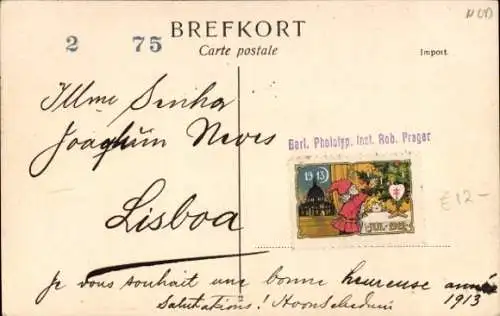 BREFKORT
Carte postale
2 75
Import.
Illmo Senhor
Joaquim Neves
Lisboa
Berl. Phototyp. Inst. Rob. Prager
1913
JUL·1913
£12-
Je vous souhait une bonne heureuse année
1913
Salutations!